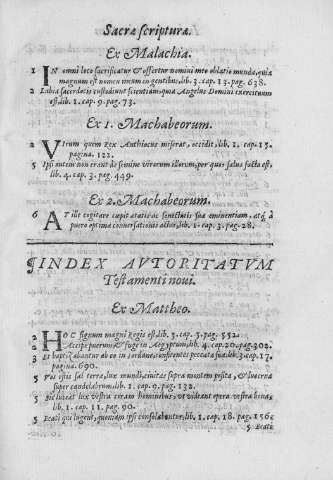 Sacræ scripturæ.
Ex Malachia.
1 IN omni loco sacrificatur & offertur nomini meo oblatio munda, quia
magnum est nomen meum in gentibus, lib. 3. cap. 13. pag. 638.
2 Labia sacerdotis custodiunt scientiam, quia Angelus Domini exercituum
est, lib. 1. cap. 9. pag. 73.
Ex 1. Machabeorum.
2 VIrum quem Rex Anthiocus miserat, occidit, lib. 1. cap. 15.
pagina. 122.
5 Ipsi autem non erant de semine virorum illorum, per quos salus facta est,
lib. 4. cap. 3. pag. 449.
Ex 2. Machabeorum.
6 AT ille cogitare cœpit ætatis ac senectutis suæ eminentiam, atq; à
puero optimæ conversationis actus, lib. 1. cap. 3. pag. 28.
INDEX AVTORITATVM
Testamenti noui.
Ex Mattheo.
2 HOC signum magni Regis est, lib. 3. cap. 3. pag. 352.
2 Accipe puerum & fuge in Aegyptum, lib. 4. cap. 20. pag. 302.
3 Et baptizabantur ab eo in Iordane, confitentes peccata sua, lib. 3. cap. 17.
pagina. 690.
5 Vos estis sal terræ, lux mundi, ciuitas supra montem posita, & lucerna
super candelabrum, lib. 1. cap. 9. pag. 132.
5 Sic luceat lux vestra coram hominibus, ut videant opera vestra bona,
lib. 1. cap. 11. pag. 90.
5 Beati qui lugent, quoniam ipsi consolabuntur, lib. 1. cap. 18. pag. 156.
5 Beati